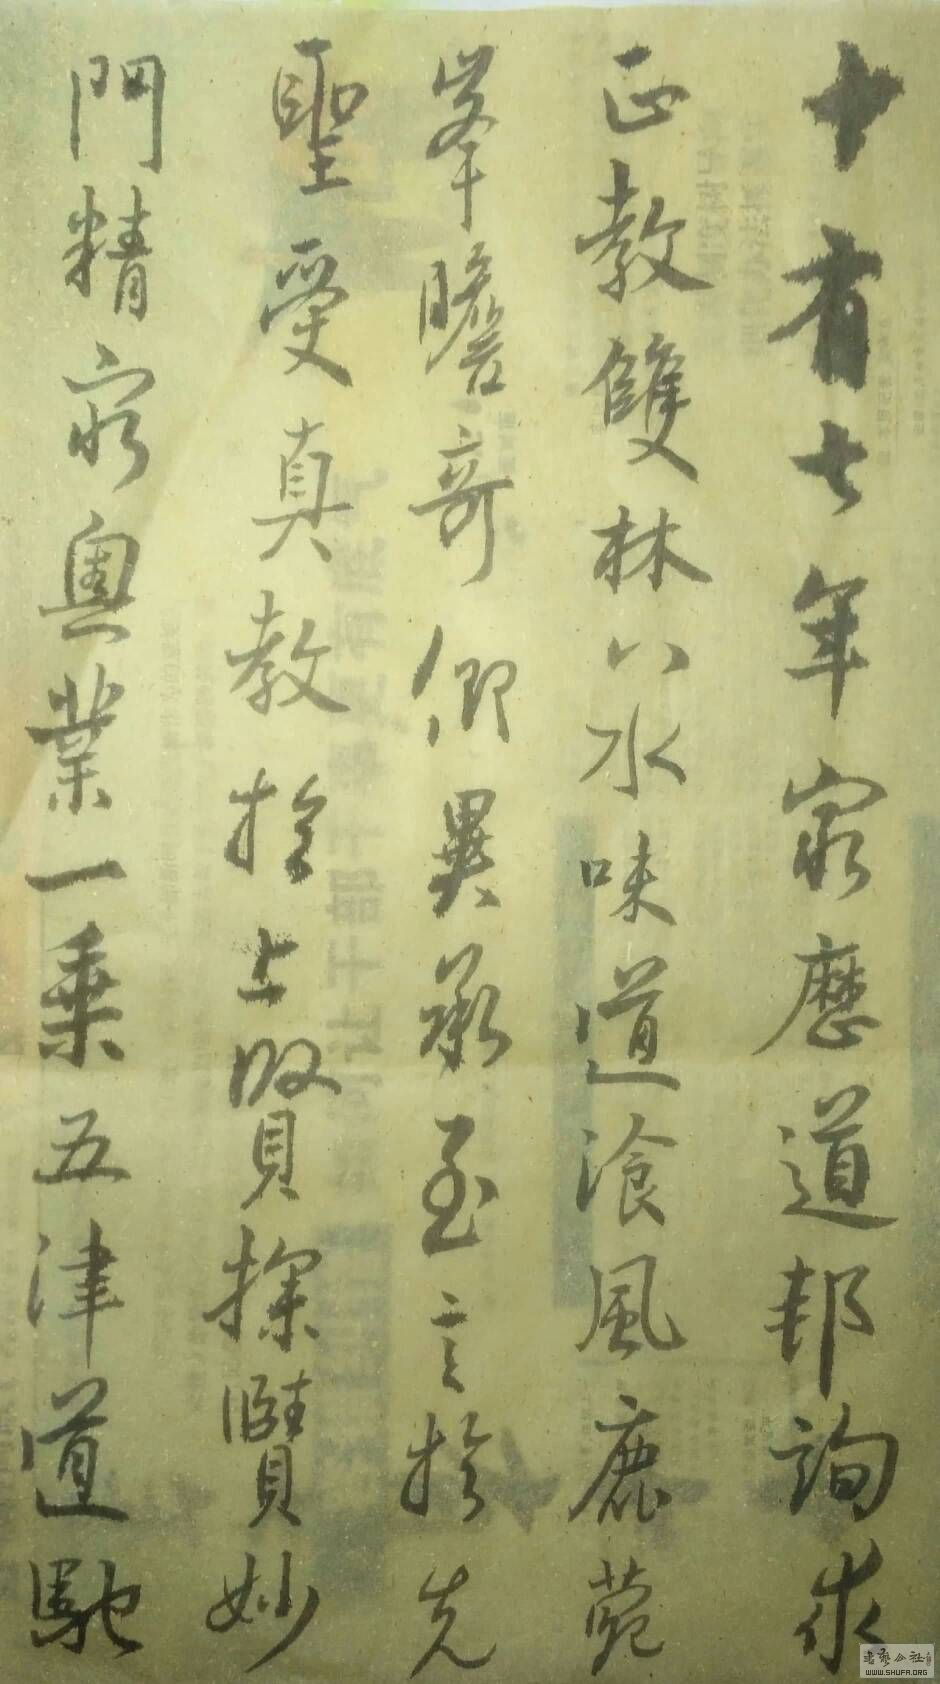 十有七年窮歷道邦詢求
正教雙林八水味道湌風鹿菀
峯瞻奇仰異承至言於先
聖受真教於上賢探賾妙
門精窮奧業一乘五津道馳
書藝公社
WWW.SHUFA.ORG